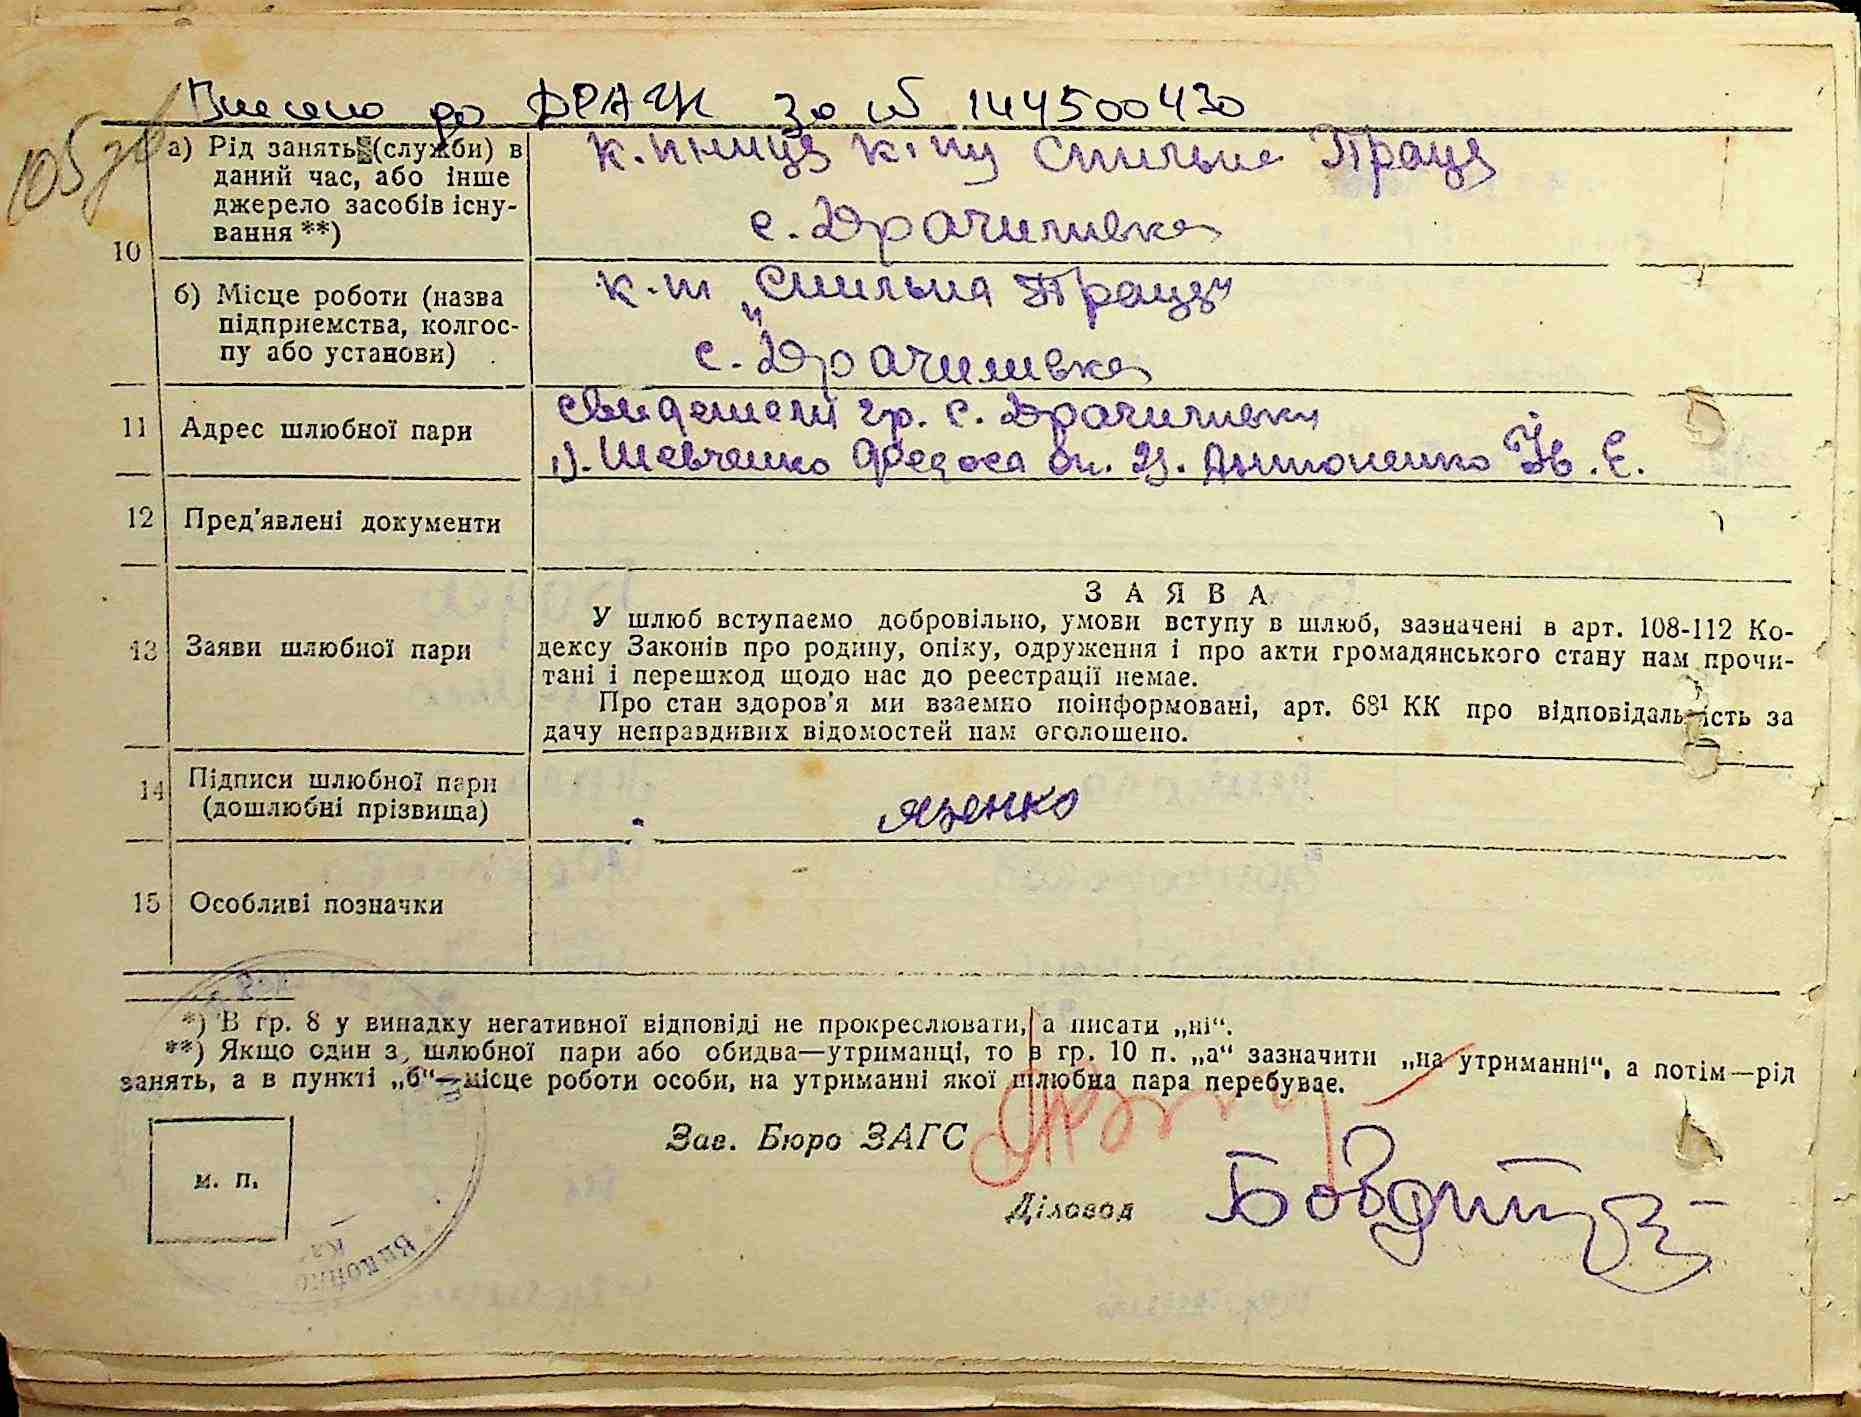 Внесено до ДРАЦС за № 144500430
105 зв
а) Рід занять (службы) в даний час, або інше джерело засобів існування **)
к.пниця к.пу Спильна Праця
с. Драчиливка
10
б) Місце роботи (назва підприемства, колгоспу або установи)
к.п „Спильна Праця"
с. Драчиливка
11 Адрес шлюбної пари
свидетелі гр. с. Драчиливки
1). Шевченко Федоса Он. 2). Антоненко Ів. Є.
12 Пред'явлені документи
13 Заяви шлюбної пари
ЗАЯВА
У шлюб вступаємо добровільно, умови вступу в шлюб, зазначені в арт. 108-112 Ко-
дексу Законів про родину, опіку, одруження і про акти громадянського стану нам прочи-
тані і перешкод щодо нас до реестрації немае.
Про стан здоров'я ми взаемно поінформовані, арт. 68¹ КК про відповідальність за
дачу неправдивих відомостей нам оголошено.
14 Підписи шлюбної пари
(дошлюбні прізвища)
Яценко
15 Особливі позначки
*) В гр. 8 у випадку негативної відповіді не прокреслювати, а писати „ні“.
**) Якщо один з шлюбної пари або обидва—утриманці, то в гр. 10 п. „а“ зазначити „на утриманні“, а потім—рід
занять, а в пункті „б“—місце роботи особи, на утриманні якої шлюбна пара перебувае.
Зав. Бюро ЗАГС
м. п.
Діловод